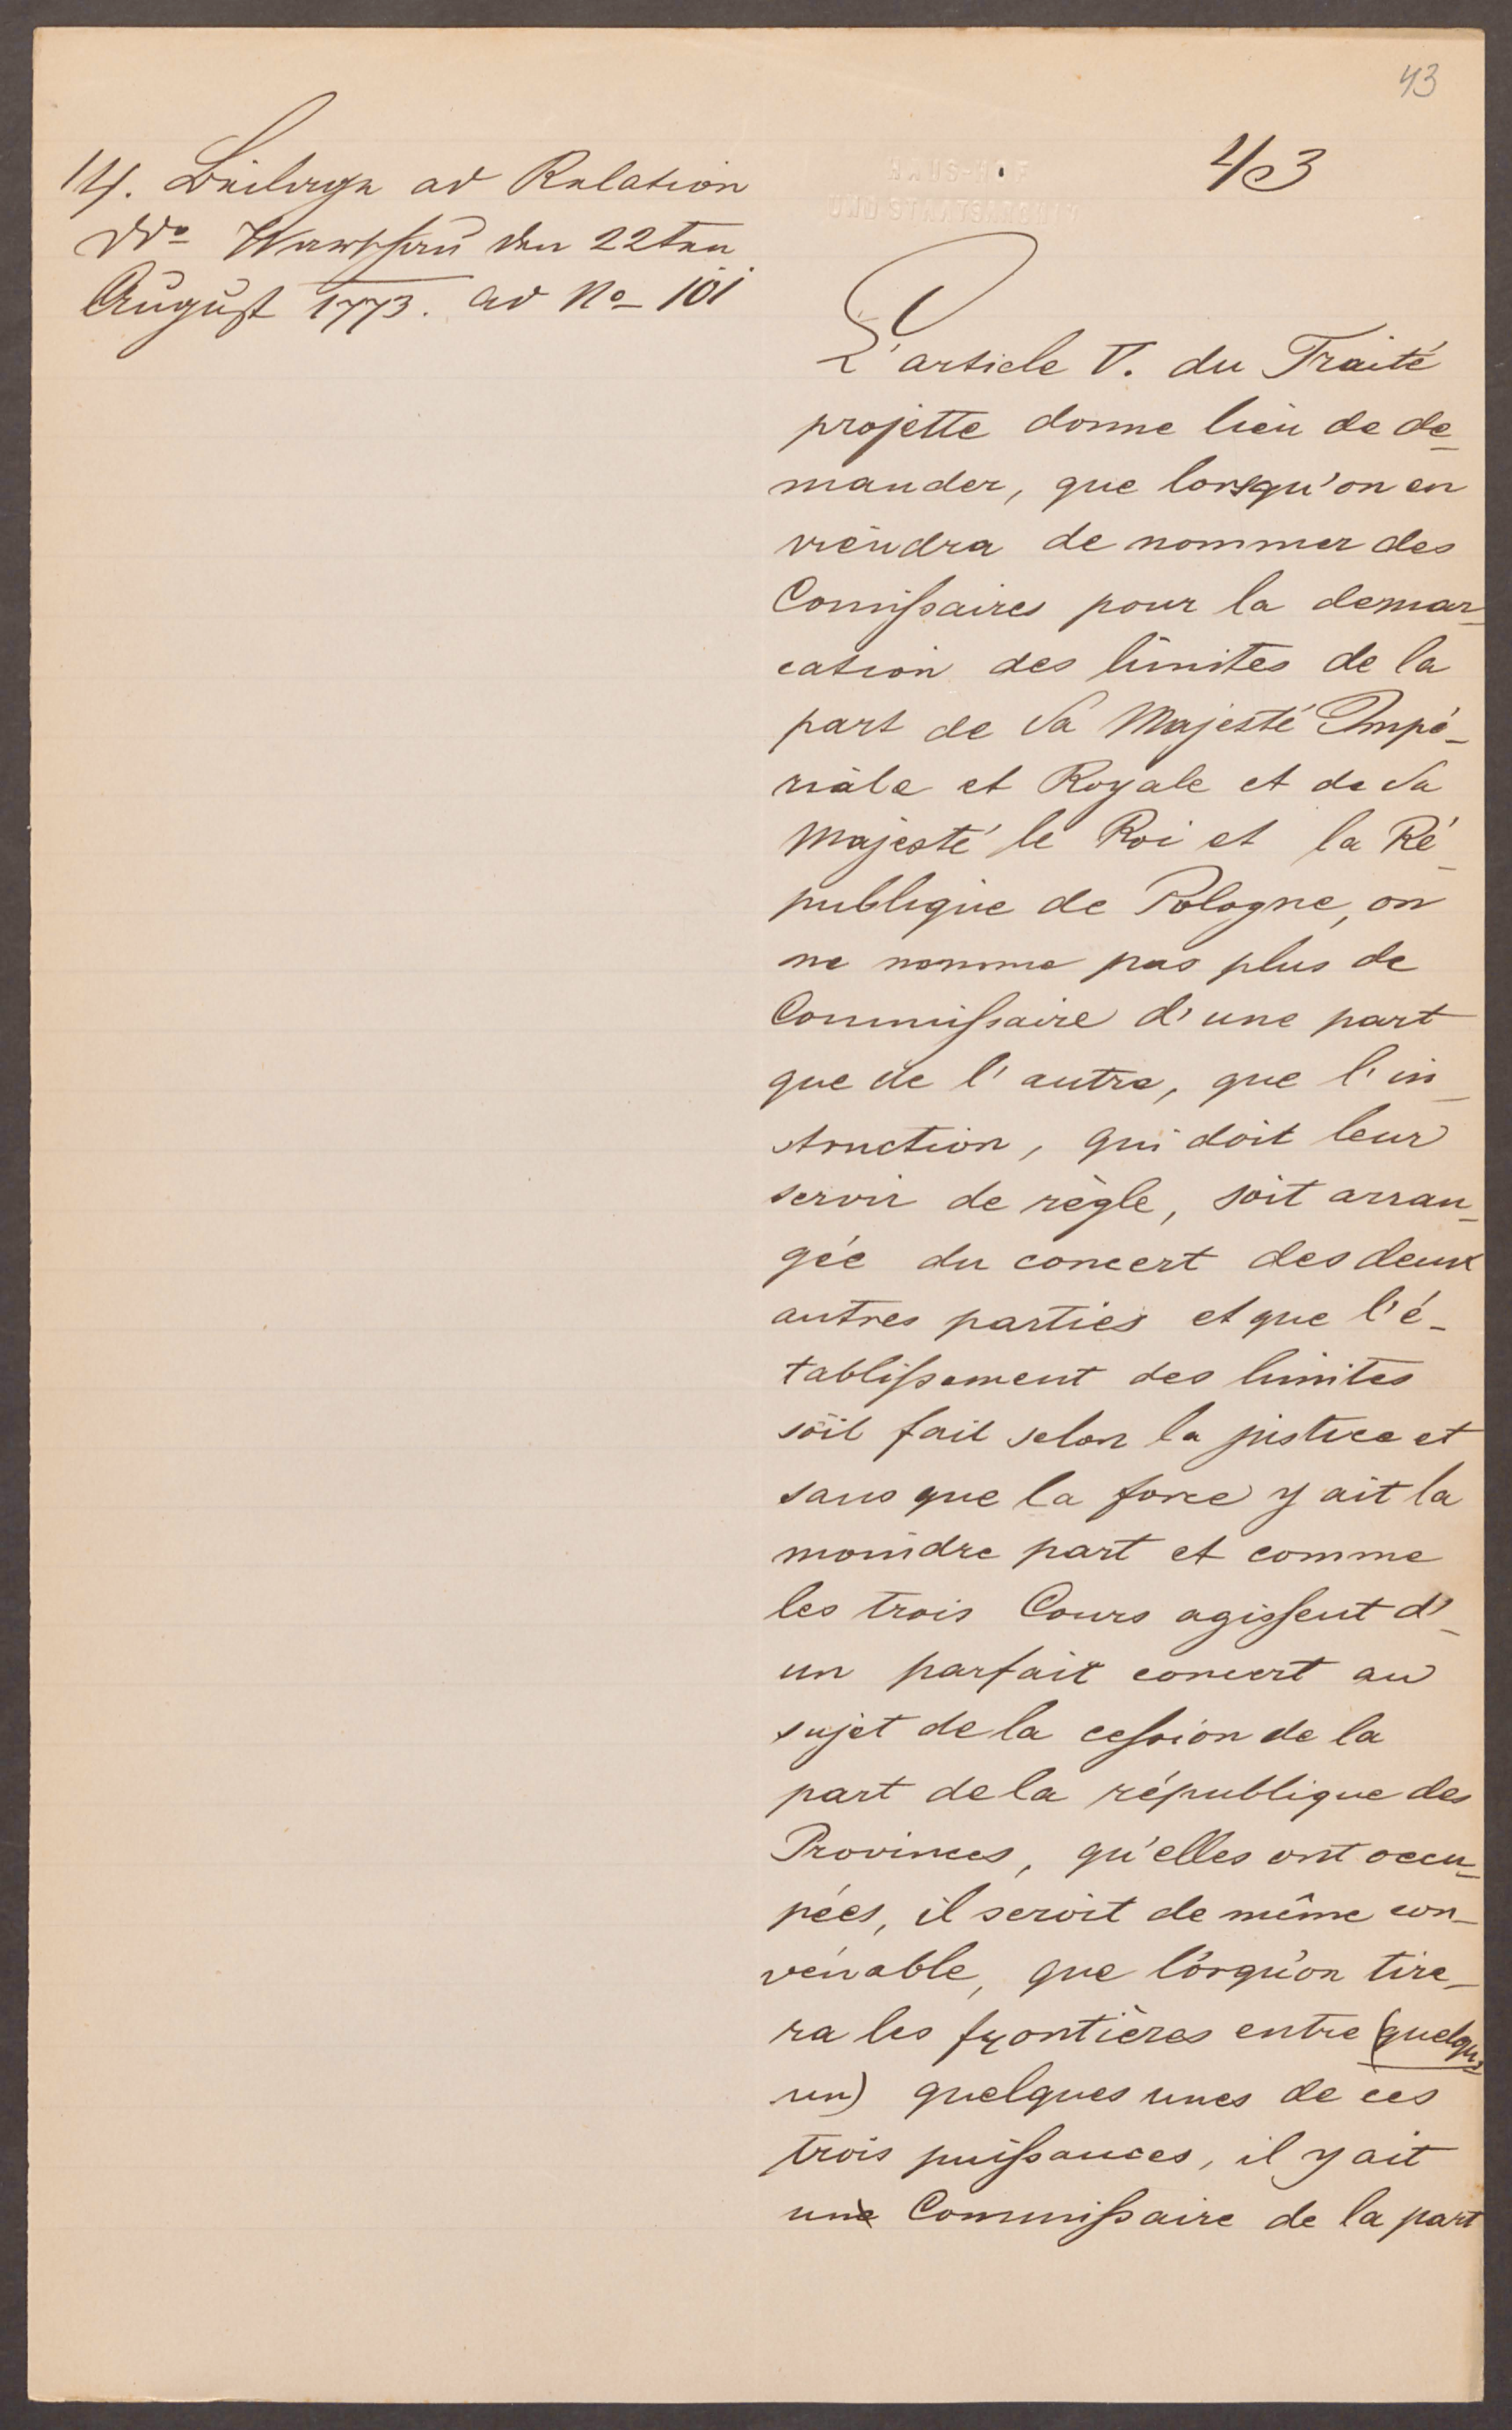 43
43
HAUS-HOF
UND STAATSARCHIV
14. Beilage ad Relation
ddo Warschau den 22ten
August 1773. ad No 101
L'article V. du Traité
projette donne lieu de de-
mander, que lorsqu'on en
viendra de nommer des
Comissaires pour la demar-
cation des limites de la
part de Sa Majesté Impé-
riale et Royale et de Sa
Majesté le Roi et la Ré-
publique de Pologne, on
ne nomme pas plus de
Commissaire d'une part
que de l'autre, que l'in-
struction, qui doit leur
servir de règle, soit arran-
gée du concert des deux
autres parties et que l'é-
tablissement des limites
soit fait selon la justice et
sans que la force y ait la
moindre part et comme
les trois Cours agissent d'-
un parfait concert au
sujet de la cession de la
part de la république des
Provinces, qu'elles ont occu-
pées, il seroit de même con-
venable, que lorqu'on tire-
ra les frontières entre (quelqu'-
un) quelques unes de ces
trois puissances, il y ait
une Commissaire de la part